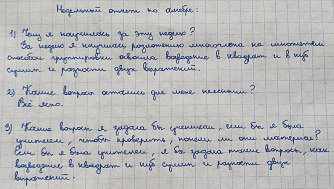 Недельный отчет по алгебре.
1) Чему я научилась за эту неделю?
За неделю я научилась разложению многочлена на множители
способом группировки освоила возведение в квадрат и в куб
суммы и разности двух выражений.
2) Какие вопросы остались для меня неясными?
Всё ясно.
3) Какие вопросы я задала бы ученикам, если бы я была
учителем, чтобы проверить, поняли ли они материал?
Если бы я была учителем, я бы задала такие вопросы, как
возведение в квадрат и куб суммы и разности двух
выражений.